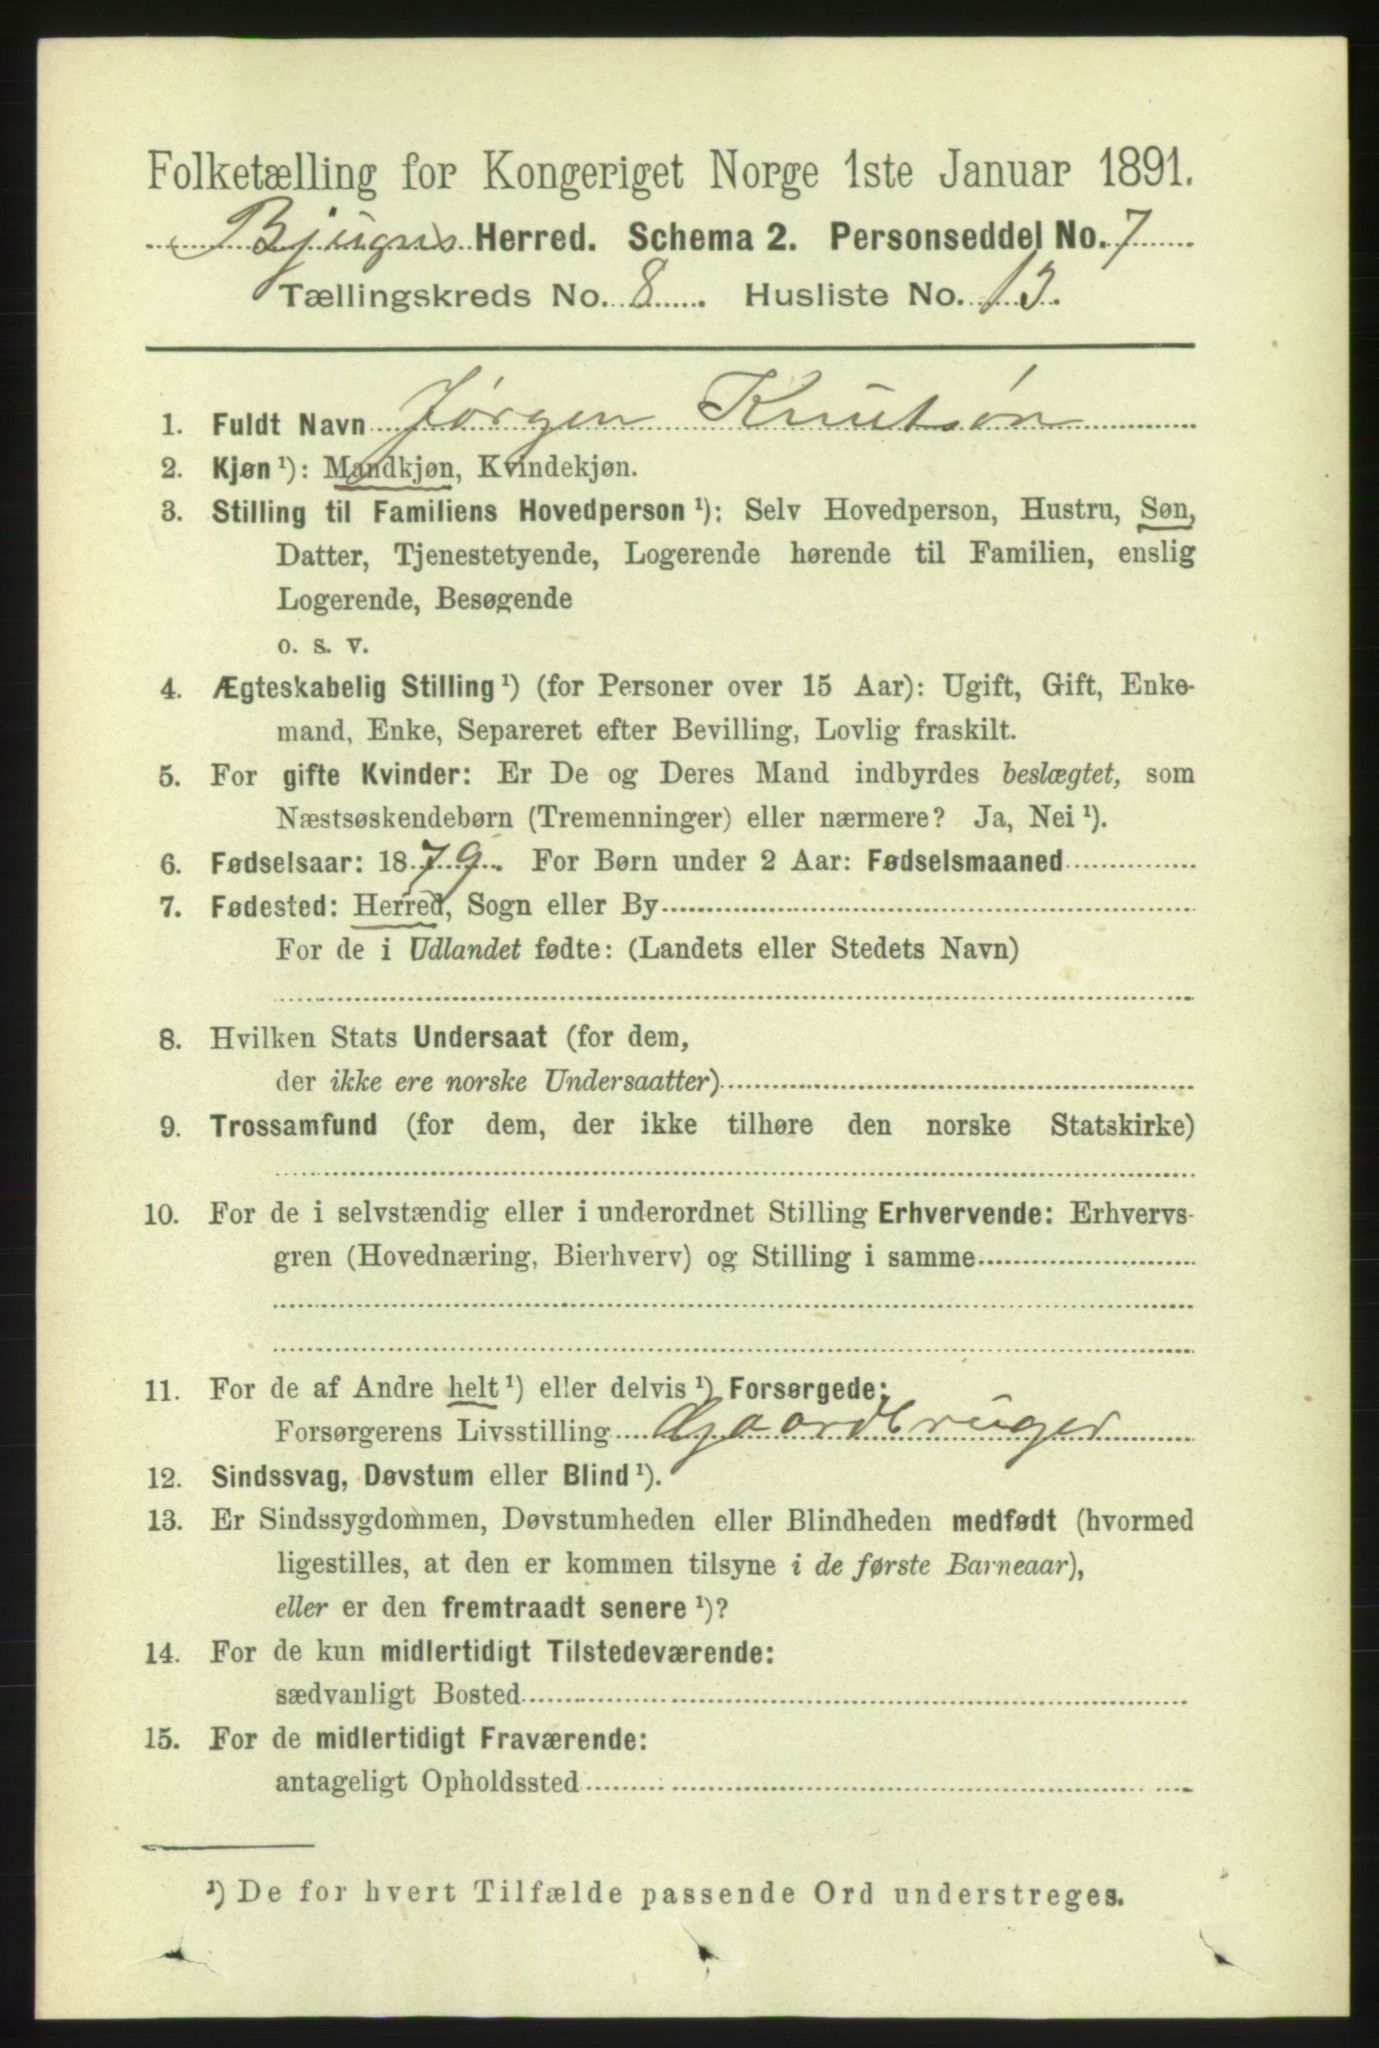 Folketælling for Kongeriget Norge 1ste Januar 1891.
Bjugns Herred. Schema 2. Personseddel No. 7
Tællingskreds No. 8. Husliste No. 13.
1. Fuldt Navn Jørgen Knutsøn
2. Kjøn¹): Mandkjøn, Kvindekjøn.
3. Stilling til Familiens Hovedperson¹): Selv Hovedperson, Hustru, Søn,
Datter, Tjenestetyende, Logerende hørende til Familien, enslig
Logerende, Besøgende
o. s. v.
4. Ægteskabelig Stilling¹) (for Personer over 15 Aar): Ugift, Gift, Enke-
mand, Enke, Separeret efter Bevilling, Lovlig fraskilt.
5. For gifte Kvinder: Er De og Deres Mand indbyrdes beslægtet, som
Næstsøskendebørn (Tremenninger) eller nærmere? Ja, Nei¹).
6. Fødselsaar: 1879. For Børn under 2 Aar: Fødselsmaaned
7. Fødested: Herred, Sogn eller By
For de i Udlandet fødte: (Landets eller Stedets Navn)
8. Hvilken Stats Undersaat (for dem,
der ikke ere norske Undersaatter)
9. Trossamfund (for dem, der ikke tilhøre den norske Statskirke)
10. For de i selvstændig eller i underordnet Stilling Erhvervende: Erhvervs-
gren (Hovednæring, Bierhverv) og Stilling i samme
11. For de af Andre helt¹) eller delvis¹) Forsørgede:
Forsørgerens Livsstilling Gaardbruger
12. Sindssvag, Døvstum eller Blind¹).
13. Er Sindssygdommen, Døvstumheden eller Blindheden medfødt (hvormed
ligestilles, at den er kommen tilsyne i de første Barneaar),
eller er den fremtraadt senere¹)?
14. For de kun midlertidigt Tilstedeværende:
sædvanligt Bosted
15. For de midlertidigt Fraværende:
antageligt Opholdssted
¹) De for hvert Tilfælde passende Ord understreges.